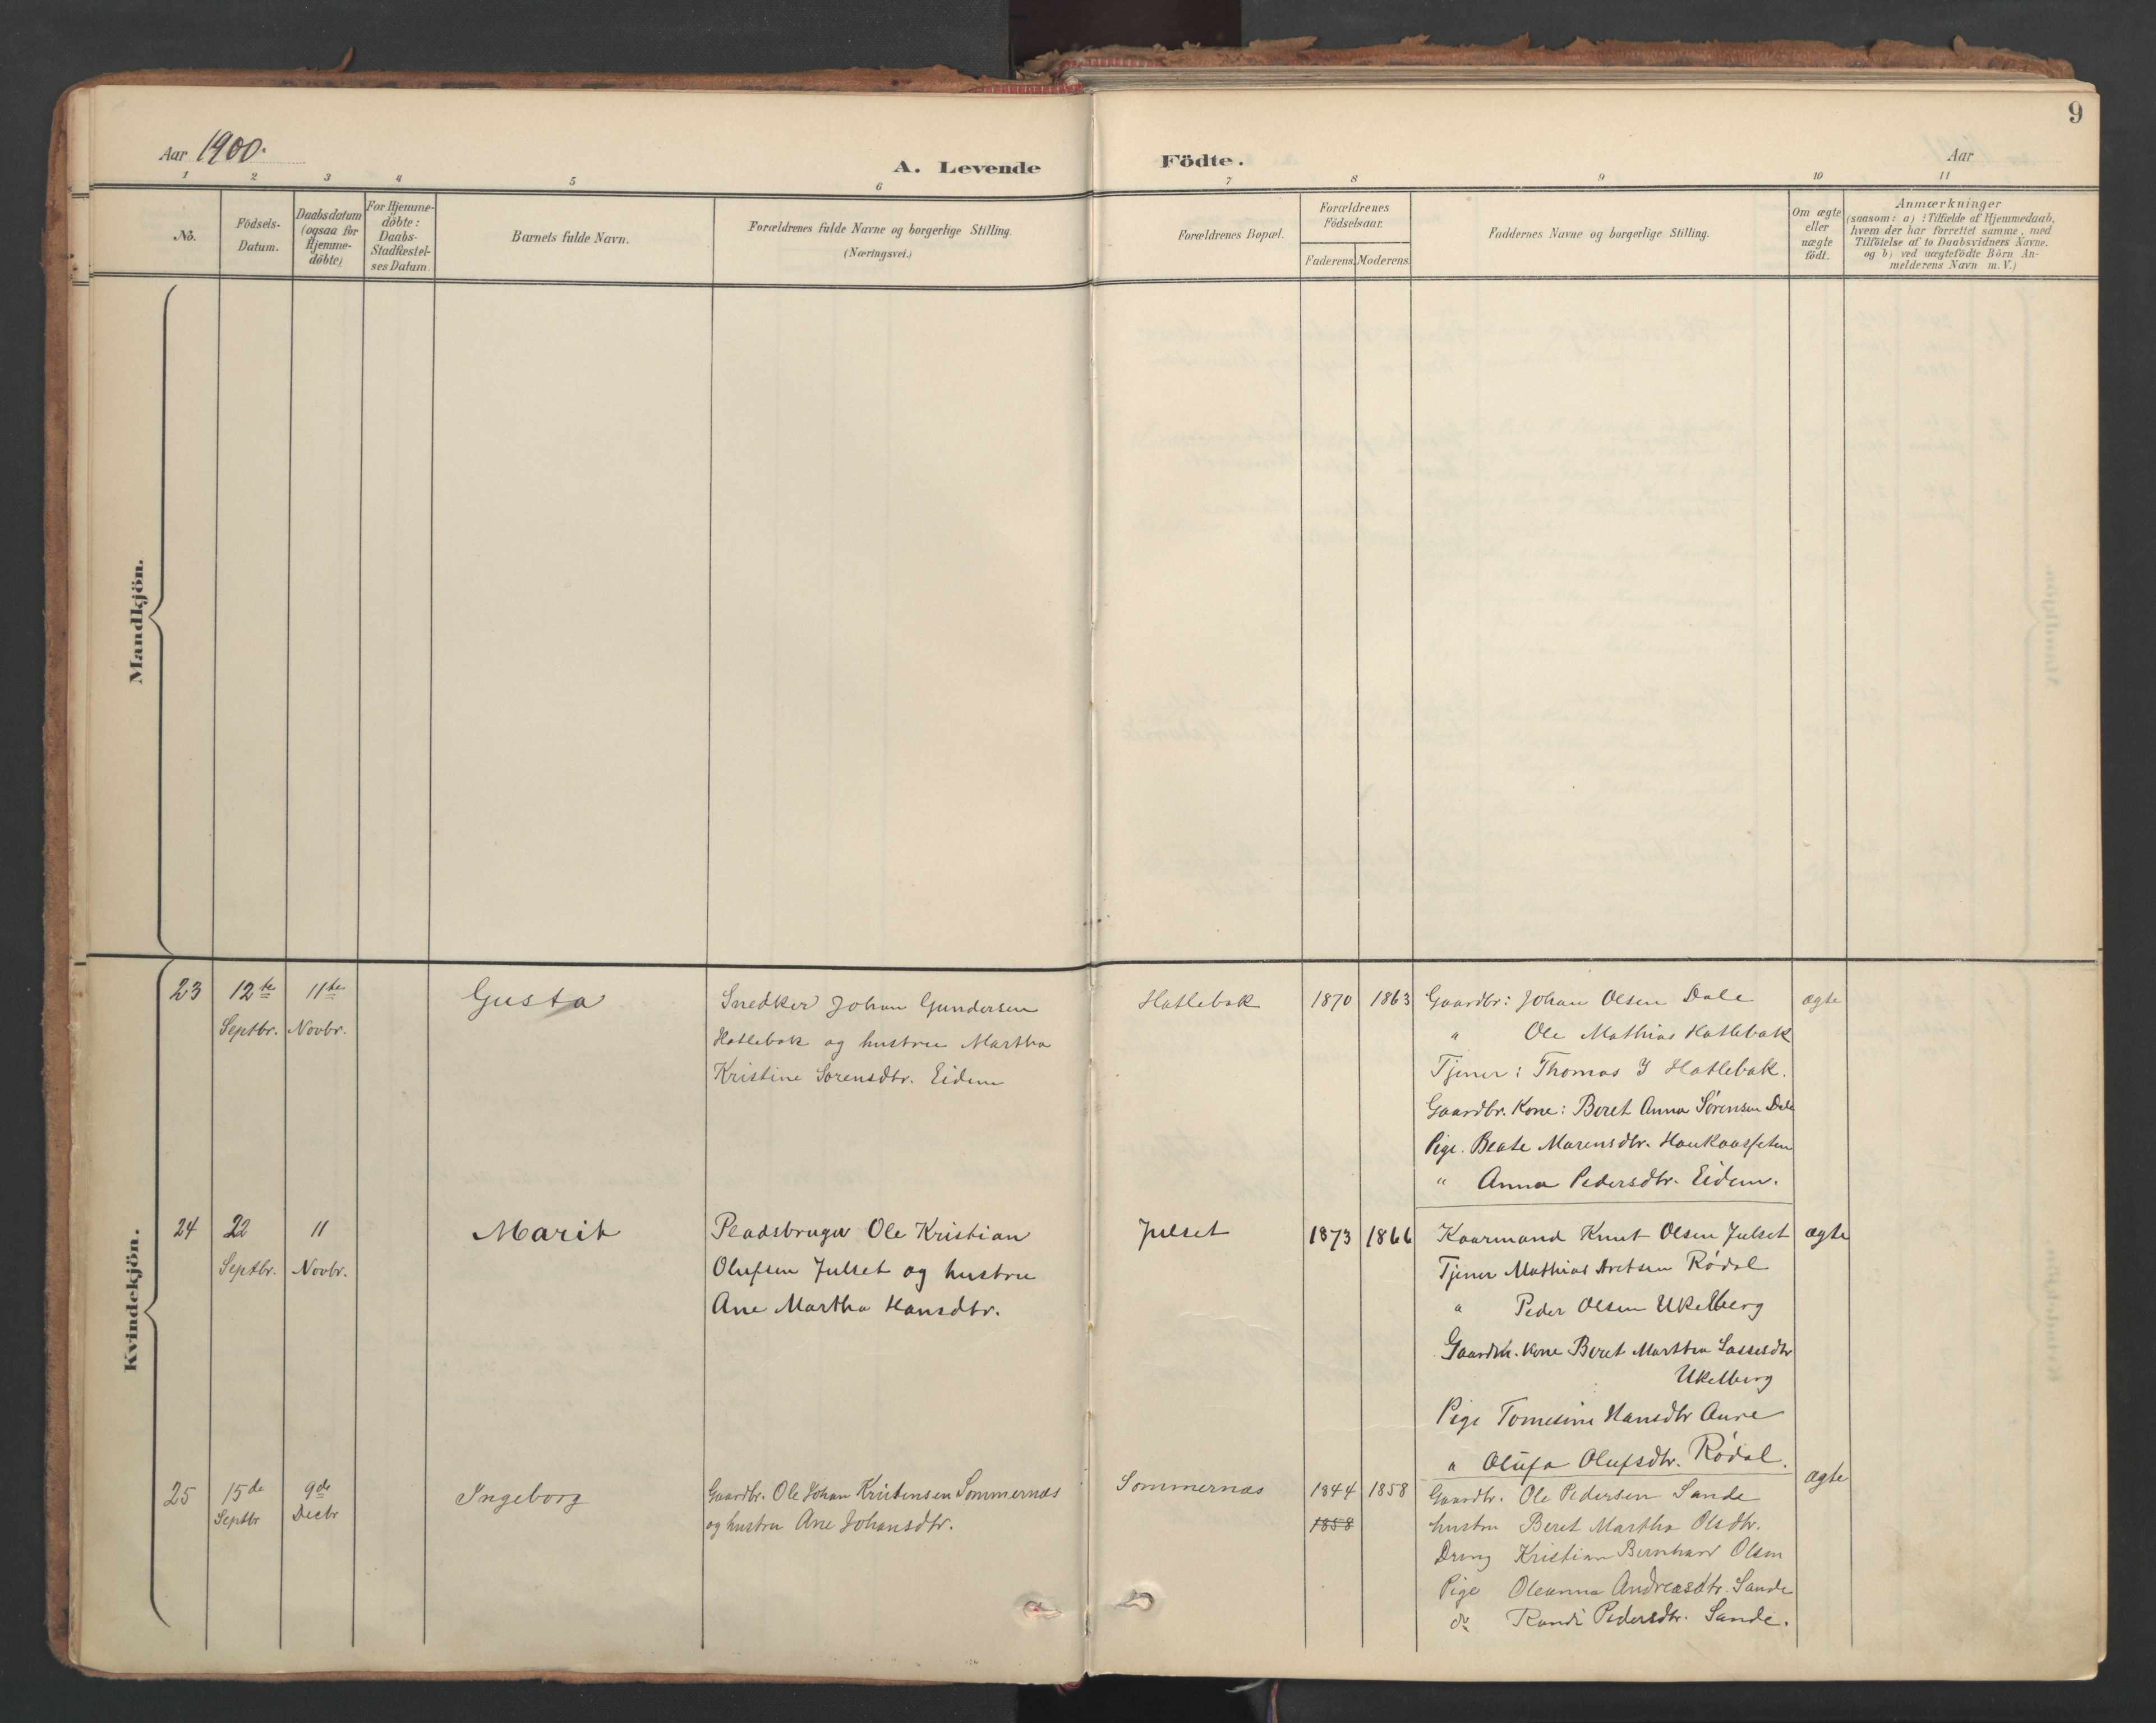 9
Aar 1900.
A. Levende Födte.
Aar
1 2 3 4 5 6 7 8 9 10 11
No.
Födsels-
Datum.
Daabsdatum
(ogsaa for
Hjemme-
döbte)
For Hjemme-
döbte:
Daabs-
Stadfæstel-
ses Datum.
Barnets fulde Navn.
Forældrenes fulde Navne og borgerlige Stilling.
(Næringsvei.)
Forældrenes Bopæl.
Forældrenes
Födselsaar.
Faderens. Moderens.
Faddernes Navne og borgerlige Stilling.
Om ægte
eller
uægte
födt.
Anmærkninger
(saasom: a) i Tilfælde af Hjemmedaab,
hvem der har forrettet samme, med
Tilföielse af to Daabsvidners Navne.
og b) ved uægtefödte Börn An-
melderens Navn m. V.)
Mandkjön.
Kvindekjön.
23
12te
Septbr.
11te
Novbr.
Gusta
Snedker Johan Gundersen
Hatlebak og hustru Martha
Kristine Sørensdtr. Eidem
Hatlebak
1870
1863
Gaardbr: Johan Olsen Dale
" Ole Mathias Hatlebak
Tjener: Thomas J Hatlebak.
Gaardbr. Kone: Beret Anna Sørensen Dale
Pige. Beate Marensdtr. Haukaasseten
" Anna Pedersdtr. Eidem.
ægte
24
22
Septbr.
11
Novbr.
Marit
Pladsbruger Ole Kristian
Olufsen Julset og hustru
Ane Martha Hansdtr.
Julset
1873
1866
Kaarmand Knut Olsen Julset
Tjener Mathias Aretsen Rødal
" Peder Olsen Ukelberg
Gaardbr. Kone Beret Martha Lassesdtr
Ukelberg
Pige Tomesine Hansdtr Aure
" Olufa Olufsdtr. Rødal.
ægte
25
15de
Septbr
9de
Decbr
Ingeborg
Gaardbr. Ole Johan Kristensen Sommernæs
og hustru Ane Johansdtr.
Sommernæs
1844
1858
1858
Gaardbr. Ole Pedersen Sande
hustru Beret Martha Olsdtr.
Dreng Kristian Bernhard Olsen
Pige Oleanna Andreasdtr. Sande
do Randi Pedersdtr. Sande.
ægte